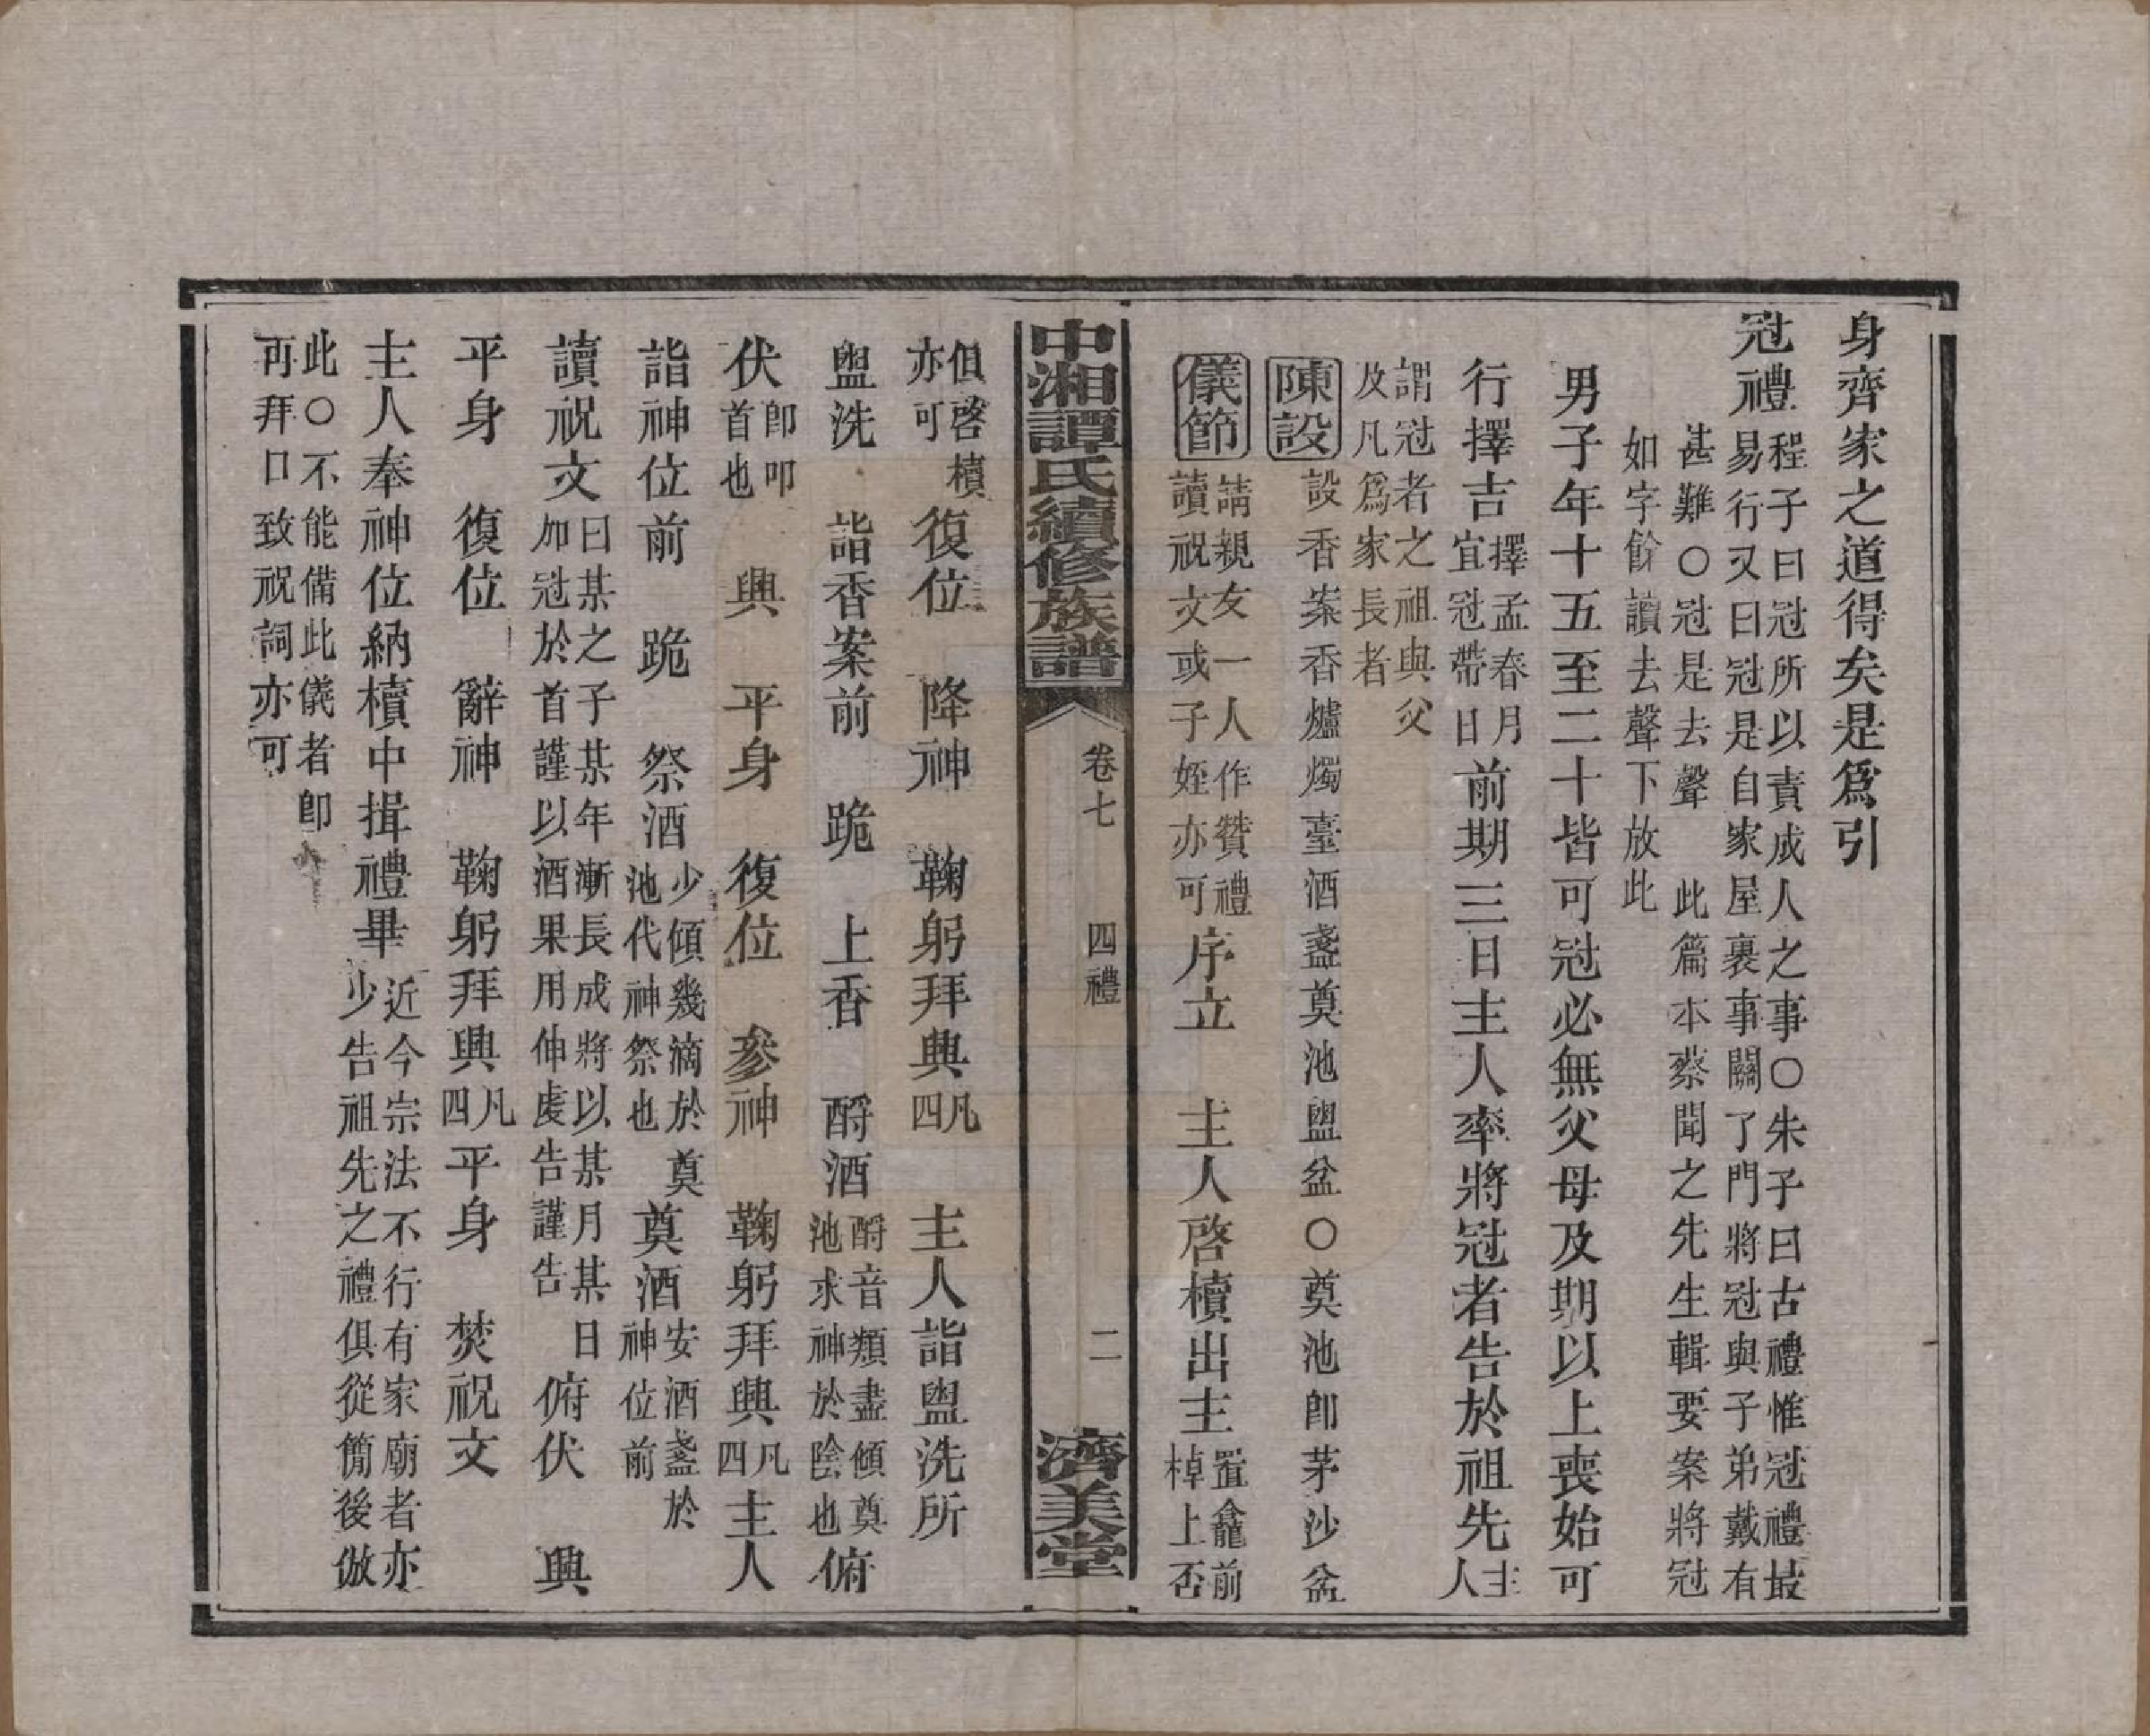 身齊家之道得矣是爲引
冠禮程子曰冠所以責成人之事○朱子曰古禮惟冠禮最
易行又曰冠是自家屋裏事關了門將冠與子弟戴有
甚難○冠是去聲　此篇本蔡聞之先生輯要案將冠
如字餘讀去聲下放此
男子年十五至二十皆可冠必無父母及期以上喪始可
行擇吉擇孟春月宜冠帶日前期三日主人率將冠者告於祖先主人
謂冠者之祖與父
及凡爲家長者
陳設　設香案香爐燭臺酒盞奠池盥盆○奠池卽茅沙盆
儀節　請親友一人作贊禮讀祝文或子姪亦可序立　主人啓櫝出主置龕前棹上否
中湘譚氏續修族譜　卷七　四禮　二　濟美堂
俱啓櫝亦可復位　降神　鞠躬拜興凡四　主人詣盥洗所
盥洗　詣香案前　跪　上香　酹酒酹音類盡傾奠池求神於陰也俯
伏卽叩首也　興　平身　復位　參神　鞠躬拜興凡四主人
詣神位前　跪　祭酒少傾幾滴於奠池代神祭也　奠酒安酒盞於神位前
讀祝文曰某之子某年漸長成將以某月某日加冠於首謹以酒果用伸虔告謹告　俯伏　興
平身　復位　辭神　鞠躬拜興凡四平身　焚祝文
主人奉神位納櫝中揖禮畢近今宗法不行有家廟者亦少告祖先之禮俱從簡後倣
此○不能備此儀者卽
再拜口致祝詞亦可